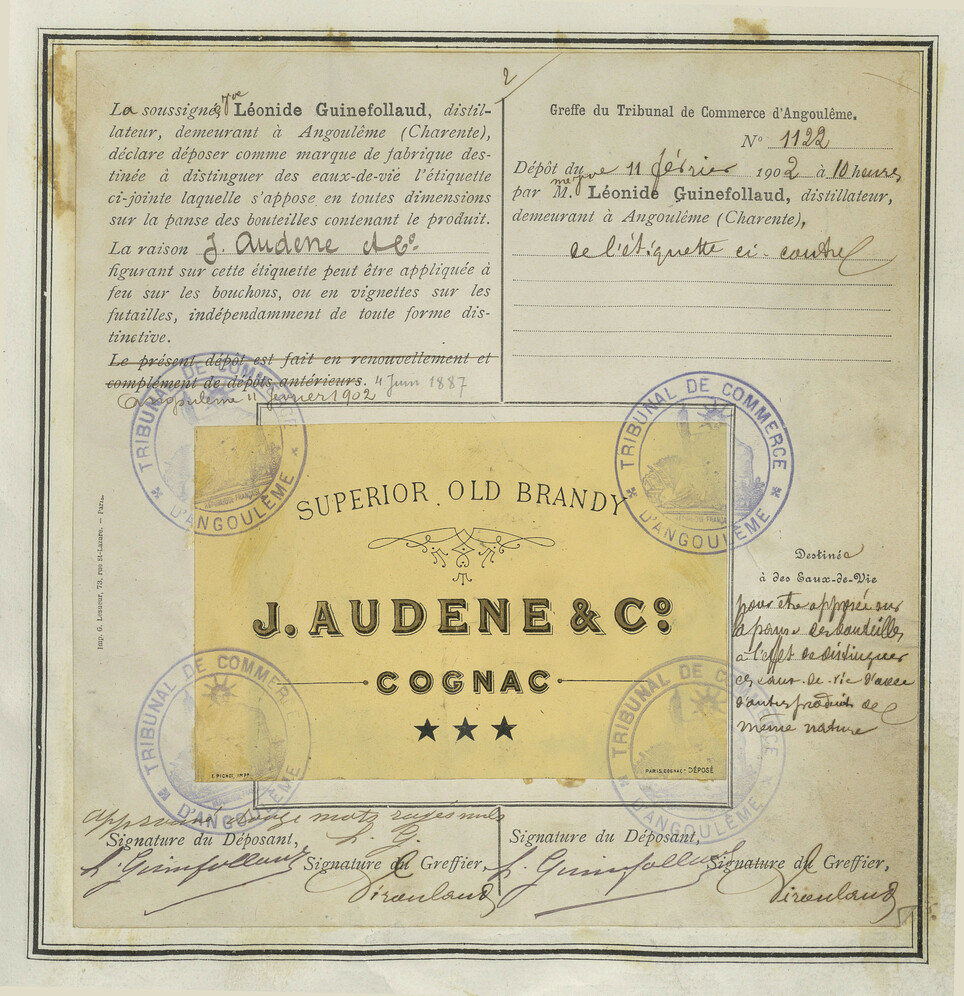 2
La soussignée Vve Léonide Guinefollaud, distil-
lateur, demeurant à Angoulême (Charente),
déclare déposer comme marque de fabrique des-
tinée à distinguer des eaux-de-vie l'étiquette
ci-jointe laquelle s'appose en toutes dimensions
sur la panse des bouteilles contenant le produit.
La raison J. Audene & Co.
figurant sur cette étiquette peut être appliquée à
feu sur les bouchons, ou en vignettes sur les
futailles, indépendamment de toute forme dis-
tinctive.
Le présent dépôt est fait en renouvellement et
complément de dépôts antérieurs. 11 Juin 1887
Angoulême 11 février 1902
Greffe du Tribunal de Commerce d'Angoulême.
No 1122
Dépôt du 11 février 1902 à 10 heures
par Mme Vve Léonide Guinefollaud, distillateur,
demeurant à Angoulême (Charente),
de l'étiquette ci-contre
TRIBUNAL DE COMMERCE D'ANGOULÊME
TRIBUNAL DE COMMERCE D'ANGOULÊME
Imp. G. Lesueur, 73, rue St-Lazare. — Paris.
SUPERIOR OLD BRANDY
J. AUDENE & Co
COGNAC
★ ★ ★
PARIS, COGNAC - DÉPOSÉ
TRIBUNAL DE COMMERCE D'ANGOULÊME
TRIBUNAL DE COMMERCE D'ANGOULÊME
Destinée
à des Eaux-de-Vie
pour être apposée sur
la panse des bouteilles
à l'effet de distinguer
ces eaux-de-vie d'avec
d'autres produits de
même nature
mots rayés nuls
L. G.
Signature du Déposant,
L. Guinefollaud
Signature du Greffier,
Signature du Déposant,
L. Guinefollaud
Signature du Greffier,